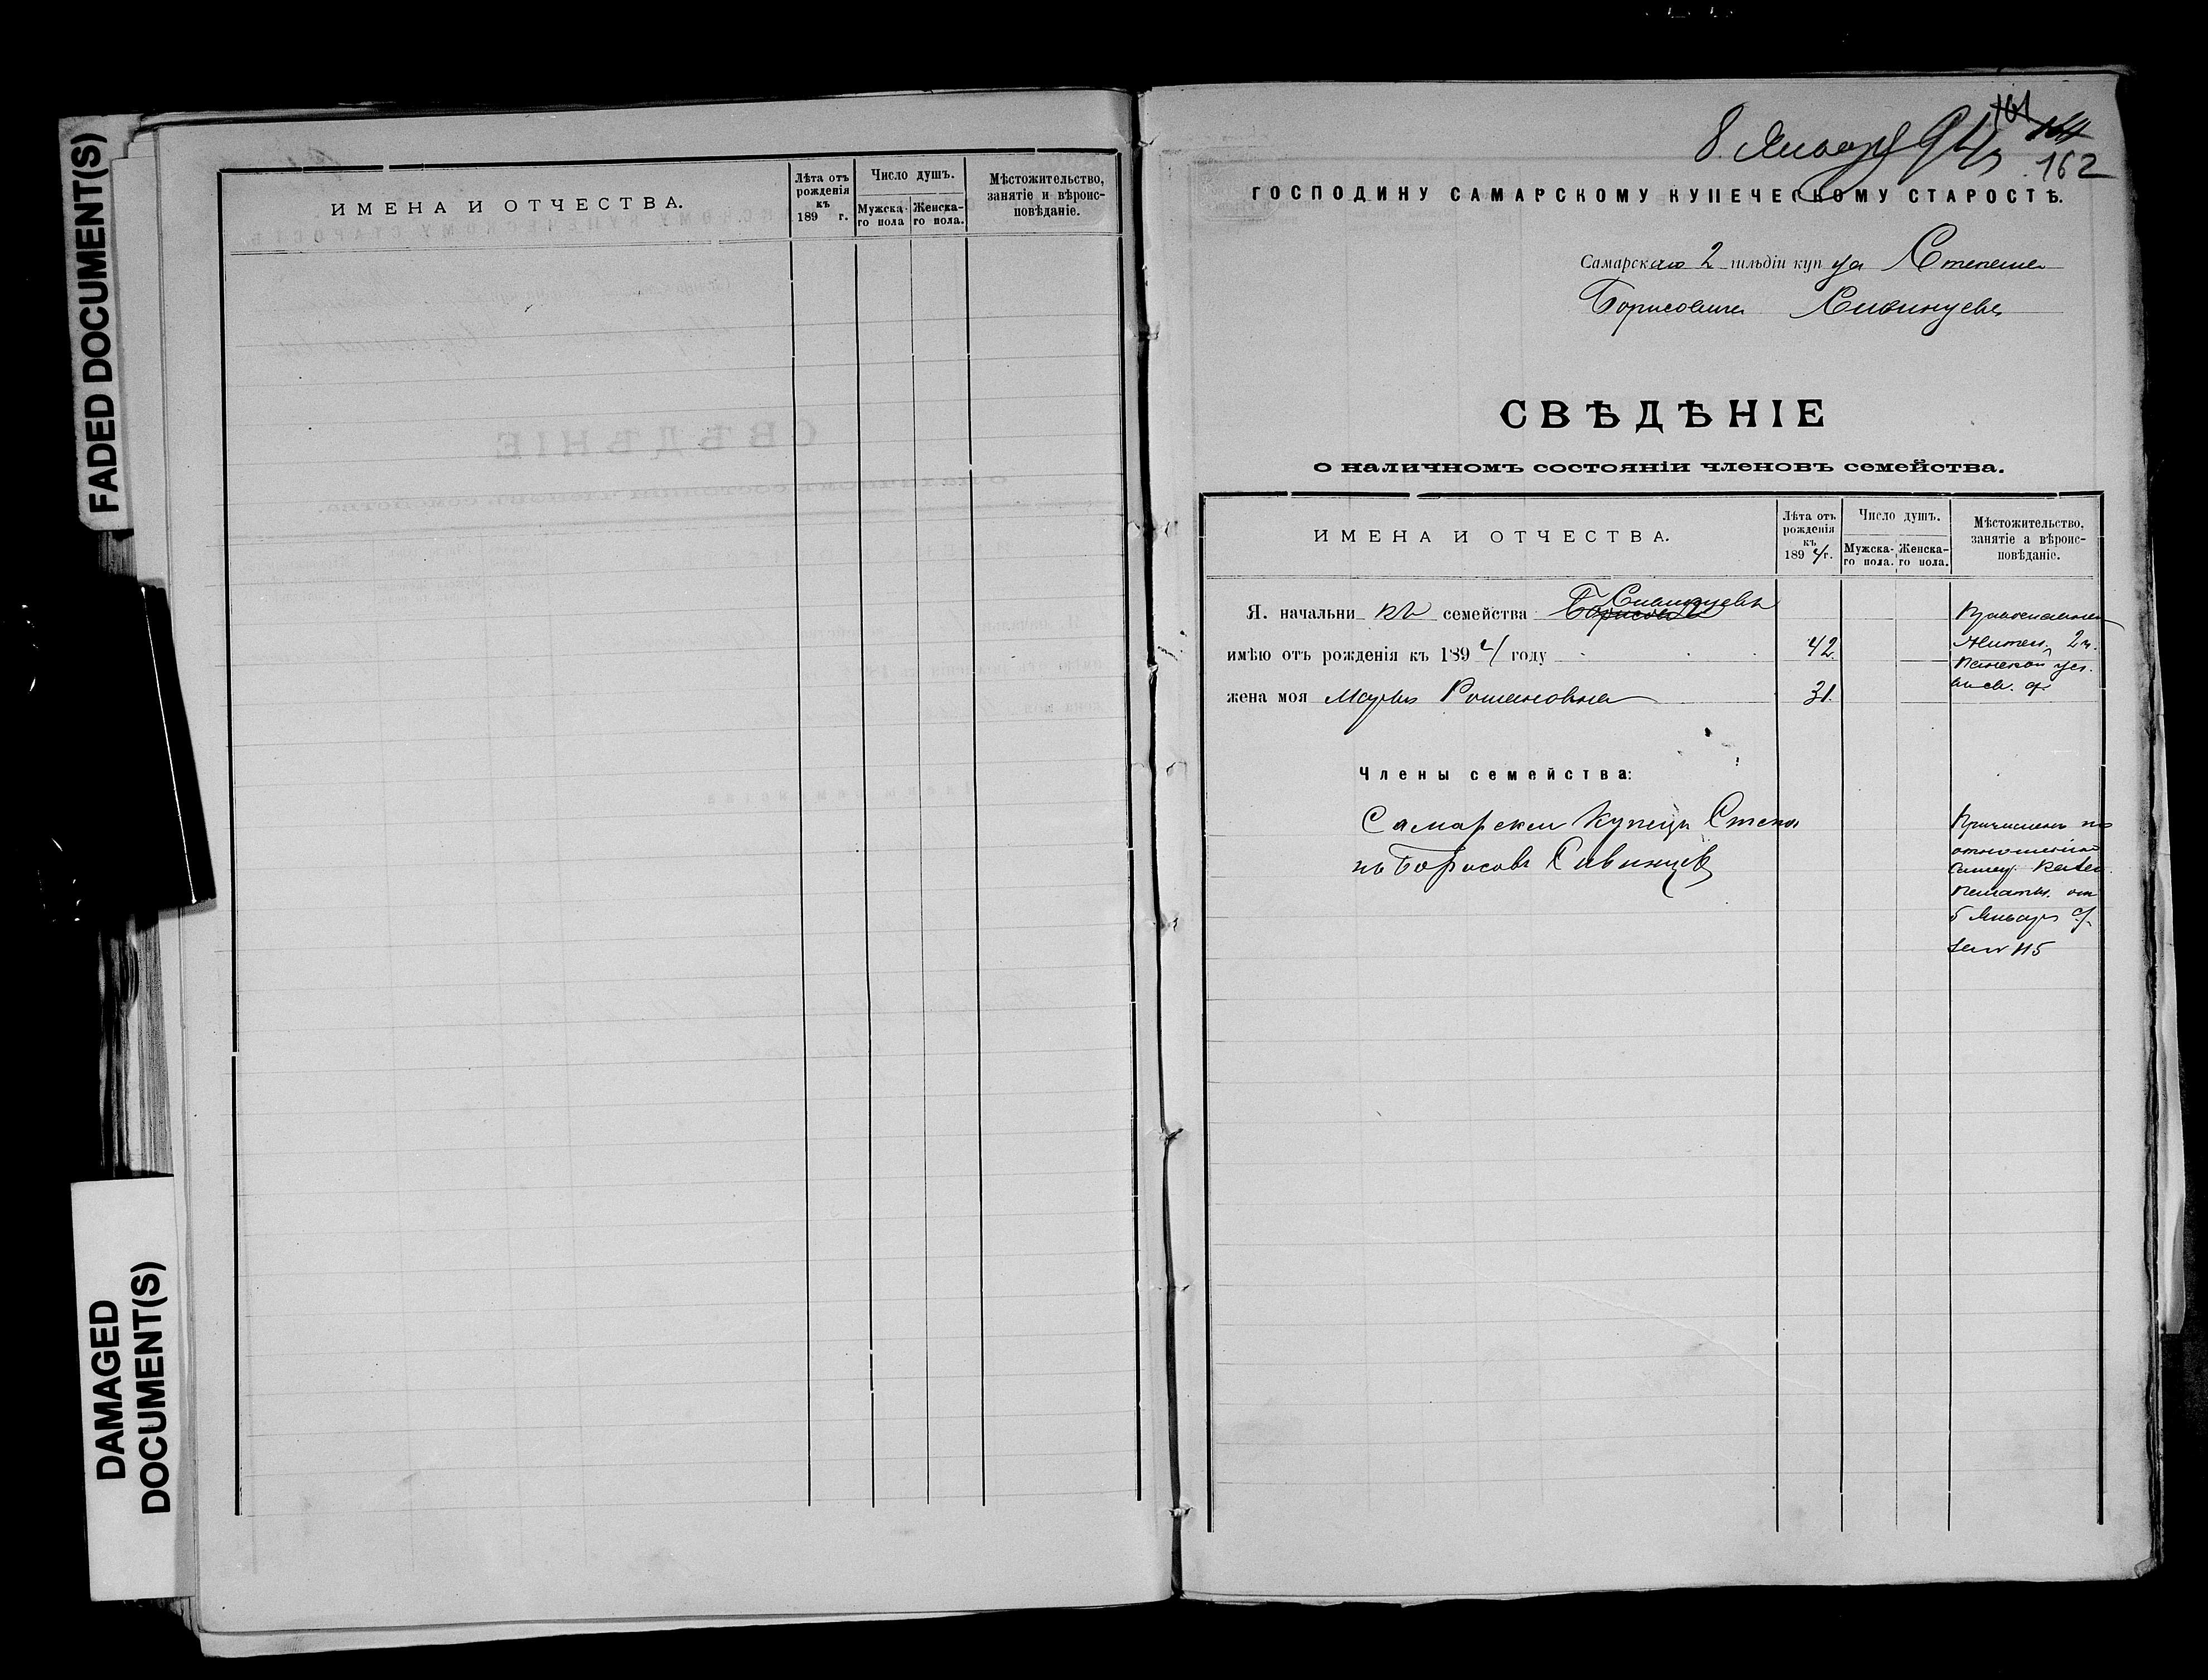 FADED DOCUMENT(S)
DAMAGED
DOCUMENT(S)
ИМЕНА И ОТЧЕСТВА.
Лѣта отъ
рожденія
къ
189 г.
Число душъ.
Мужска-
го пола
Женска-
го пола.
Мѣстожительство,
занятіе и вѣроис-
повѣданіе.
8. Января 94 г.
161
164
162
ГОСПОДИНУ САМАРСКОМУ КУПЕЧЕСКОМУ СТАРОСТѢ.
Самарскаго 2 гильдіи купца Степана
Борисовича Сивинцева
СВѢДѢНІЕ
о наличномъ состояніи членовъ семейства.
ИМЕНА И ОТЧЕСТВА.
Лѣта отъ
рожденія
къ
1894 г.
Число душъ.
Мужска-
го пола.
Женска-
го пола.
Мѣстожительство,
занятіе а вѣроис-
повѣданіе.
Сивинцевъ
Я. начальникъ семейства Борисовъ
имѣю отъ рожденія къ 1894 году 42.
жена моя Марья Романовна 31.
Православна
Члены семейства:
Самарскій Купецъ Степа
нъ Борисовъ Сивинцевъ
Причисленъ по
отношенію
Казен.
Палаты. от
5 Января с/г
за № 115